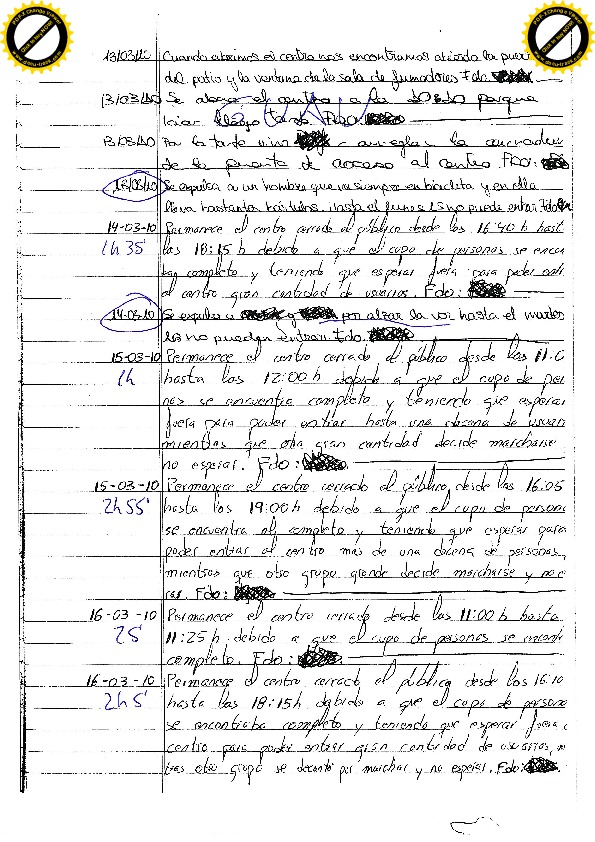 13/03/10 Cuando abrimos el centro nos encontramos abierta la puer
del patio y la ventana de la sala de fumadores Fdo.
13/03/10 Se abre el centro a las porque
llega tarde Fdo:
13/03/10 Por la tarde vino a arreglar la cerradura
de la puerta de acceso al centro Fdo:
13/03/10 Se expulsa a un hombre que va siempre en bicicleta y en ella
lleva bastantes bártulos. Hasta el lunes 15 no puede entrar. Fdo
14-03-10 Permanece el centro cerrado al público desde las 16:40 h hast
1h 35' las 18:15 h debido a que el cupo de personas se encon
completo y teniendo que esperar fuera para poder
al centro gran cantidad de usuarios. Fdo:
14-03-10 Se expulsa a y por alzar la voz hasta el martes
16 no pueden entrar. Fdo.
15-03-10 Permanece el centro cerrado al público desde las 11:0
1h hasta las 12:00 h debido a que el cupo de per
nas se encuentra completo y teniendo que esperar
fuera para poder entrar hasta una docena de usuari
mientras que otra gran cantidad decide marcharse
no esperar. Fdo:
15-03-10 Permanece el centro cerrado al público desde las 16:05
2h 55' hasta las 19:00 h debido a que el cupo de persona
se encuentra al completo y teniendo que esperar para
poder entrar al centro más de una docena de personas,
mientras que otro grupo grande decide marcharse y no e
rar. Fdo:
16-03-10 Permanece el centro cerrado desde las 11:00 h hasta
25' 11:25 h debido a que el cupo de personas se encontr
completo. Fdo:
16-03-10 Permanece el centro cerrado al público desde las 16:10
2h 5' hasta las 18:15h debido a que el cupo de persona
se encontraba completo y teniendo que esperar fuera
centro para poder entrar gran cantidad de usuarios,
tras otro grupo se decantó por marchar y no esperar. Fdo: